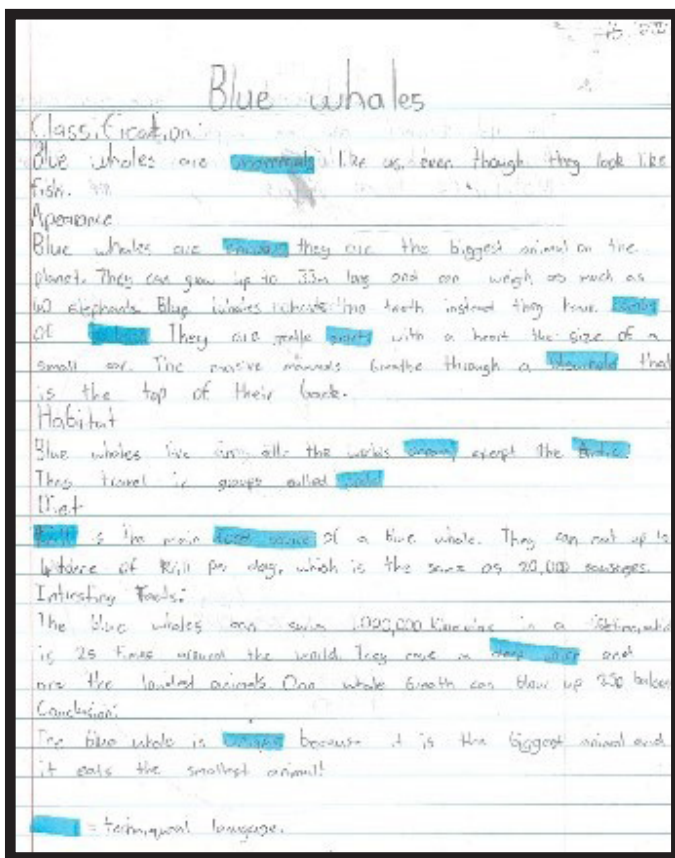 Blue whales
Classification:
Blue whales are mammals like us, even though they look like
fish.
Apearance
Blue whales are they are the biggest animal on the
planet. They can grow up to 33m long and can weigh as much as
40 elephants. Blue whales teeth instead they have
of They are gentle giants with a heart the size of a
small car. The massive mammals breathe through a that
is the top of their back.
Habitat
Blue whales live in all the worlds oceans except the Arctic.
They travel in groups called pods
Diet
Krill is the main food source of a blue whale. They can eat up to
of krill per day, which is the same as 20,000 sausages.
Facts:
The blue whales can swim in a
is 25 times around the world. They have a deep voice and
are the loudest animals. One whale breath can blow up
Conclusion:
The blue whale is because it is the biggest animal and
it eats the smallest animal!
= langage.